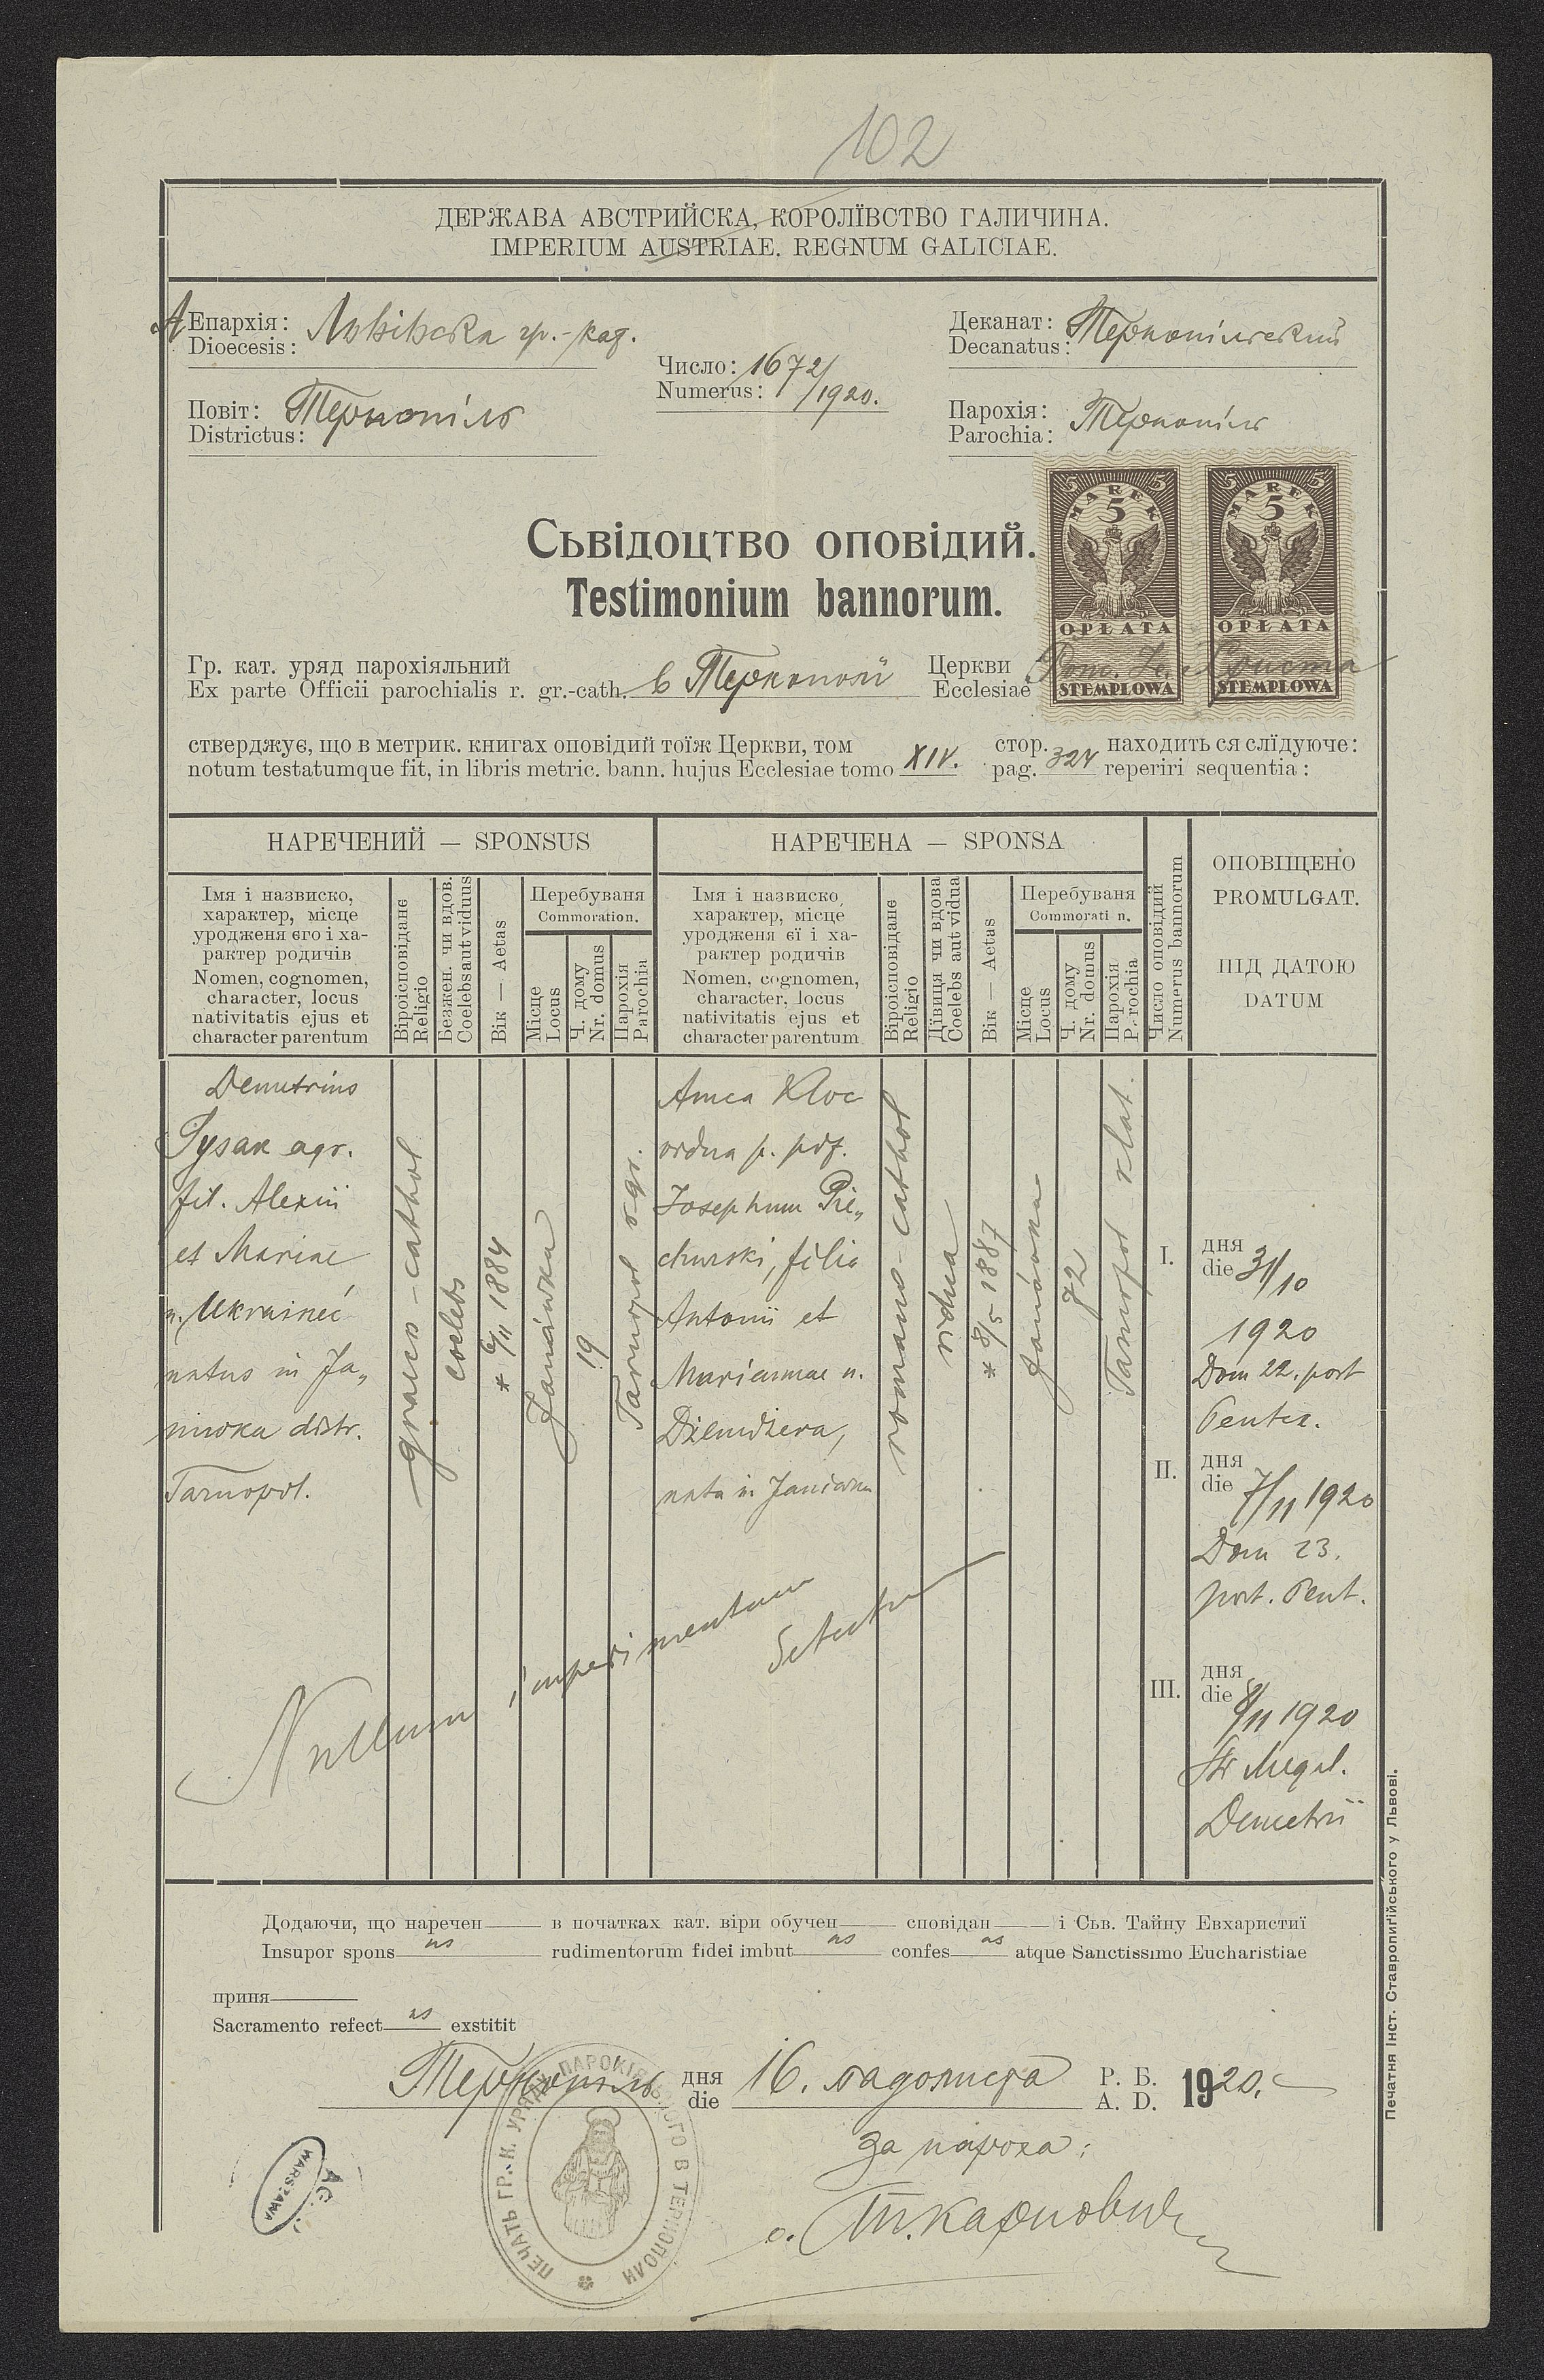 102
ДЕРЖАВА АВСТРИЙСКА, КОРОЛЇВСТВО ГАЛИЧИНА.
IMPERIUM AUSTRIAE. REGNUM GALICIAE.
А Епархія: Львівска гр.-кат.
Dioecesis:
Деканат: Тернопільский
Decanatus:
Число: 1672/1920.
Numerus:
Повіт: Тернопіль
Districtus:
Парохія: Тернопіль
Parochia:
5 5
MAREK
5
OPŁATA
STEMPLOWA
5 5
MAREK
5
OPŁATA
STEMPLOWA
Сьвідоцтво оповідий.
Testimonium bannorum.
Гр. кат. уряд парохіяльний
Ex parte Officii parochialis r. gr.-cath. в Тернополи
Церкви Христа
Ecclesiae
стверджує, що в метрик. книгах оповідий тоїж Церкви, том XIV. стор. 324 находить ся слїдуюче:
notum testatumque fit, in libris metric. bann. hujus Ecclesiae tomo pag. reperiri sequentia:
НАРЕЧЕНИЙ — SPONSUS
Імя і назвиско,
характер, місце
уродженя єго і ха-
рактер родичів
Nomen, cognomen,
character, locus
nativitatis ejus et
character parentum
Віроісповіданє
Religio
Безжен. чи вдов.
Coelebs aut viduus
Вік — Aetas
Перебуваня
Commoration.
Місце
Locus
Ч. дому
Nr. domus
Парохія
Parochia
НАРЕЧЕНА — SPONSA
Імя і назвиско,
характер, місце
уродженя єї і ха-
рактер родичів
Nomen, cognomen,
character, locus
nativitatis ejus et
character parentum
Віроісповіданє
Religio
Дївиця чи вдова
Coelebs aut vidua
Вік — Aetas
Перебуваня
Commorati n.
Місце
Locus
Ч. дому
Nr. domus
Парохія
Parochia
Число оповідий
Numerus bannorum
ОПОВІЩЕНО
PROMULGAT.
ПІД ДАТОЮ
DATUM
Demetrius
Pysak agr.
fil. Alexii
et Mariae
n. Ukrainec
natus in Ja„
niwka distr.
Tarnopol.
graeco-cathol
coelebs
* 6/11 1884
Janówka
19
Tarnopol r. gr.
Anna Kloc
vidua p. pdf.
Josephum Pie„
churski, filia
Antonii et
Mariannae n.
Dziendziera,
nata in Janiwka
romano-cathol
vidua
* 8/5 1887
Janówka
72
Tarnopol r. lat.
I. дня
die 31/10
1920
Dom 22. post
Pentec.
II. дня
die 7/11 1920
Dom 23.
post. Pent.
III. дня
die 8/11 1920
St Megal.
Demetrii
Nullum impedimentum
Додаючи, що наречен в початках кат. віри обучен сповідан і Сьв. Тайну Евхаристиї
Insupor spons us rudimentorum fidei imbut us confes us atque Sanctissimo Eucharistiae
приня
Sacramento refect us exstitit
Тернопіль дня 16. падолиста Р. Б. 1920.
die A. D.
за пароха:
о. Т. Карпович
ПЕЧАТЬ ГР. К. УРЯДУ ПАРОХІЯЛЬНОГО В ТЕРНОПОЛИ
WARSZAWA
Печатня Інст. Ставропигійського у Львові.